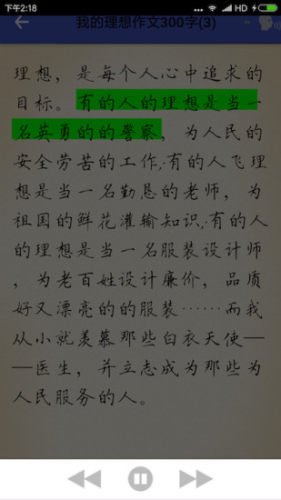 下午2:18
HD
我的理想作文300字(3)
理想，是每个人心中追求的
目标。有的人的理想是当一
名英勇的的警察，为人民的
安全劳苦的工作,·有的人飞理
想是当一名勤恳的老师，为
祖国的鲜花灌输知识,·有的人
的理想是当一名服装设计师
，为老百姓设计廉价，品质
好又漂亮的的服装······而我
从小就羡慕那些白衣天使—
—医生，并立志成为那些为
人民服务的人。